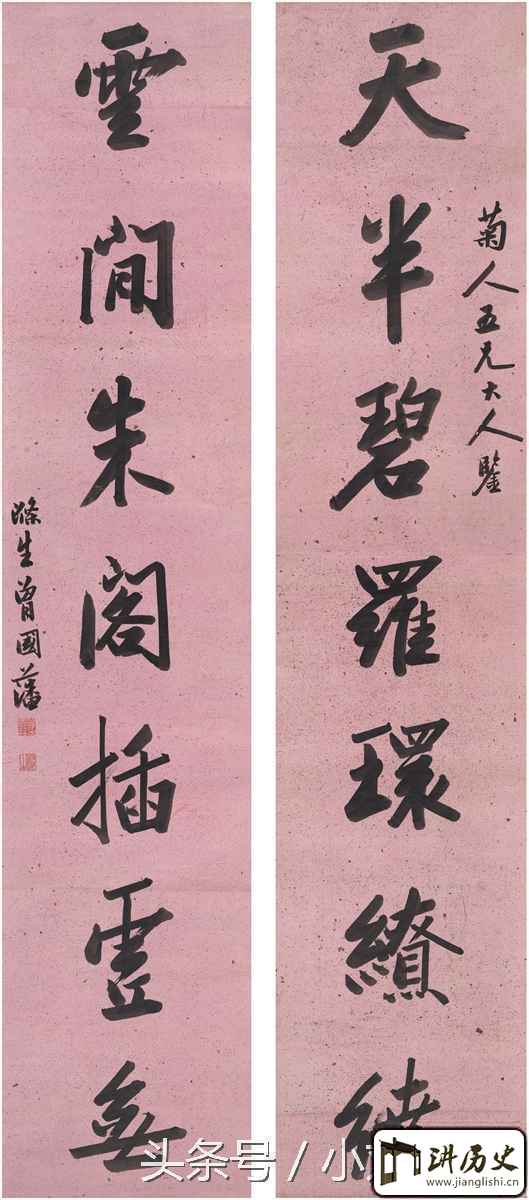 天半碧羅環繚繞
菊人五兄大人鑒
雲閒朱閣插虛無
滌生曾國藩
头条号 / 小
讲历史
www.jianglishi.cn